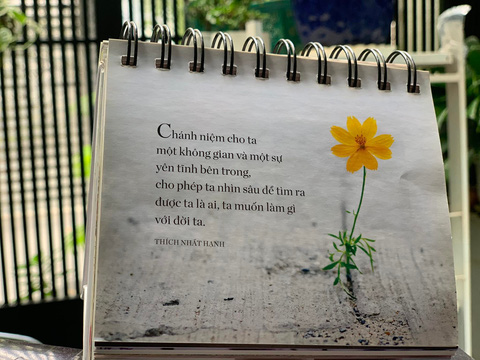 Chánh niệm cho ta
một không gian và một sự
yên tĩnh bên trong,
cho phép ta nhìn sâu để tìm ra
được ta là ai, ta muốn làm gì
với đời ta.
THÍCH NHẤT HẠNH